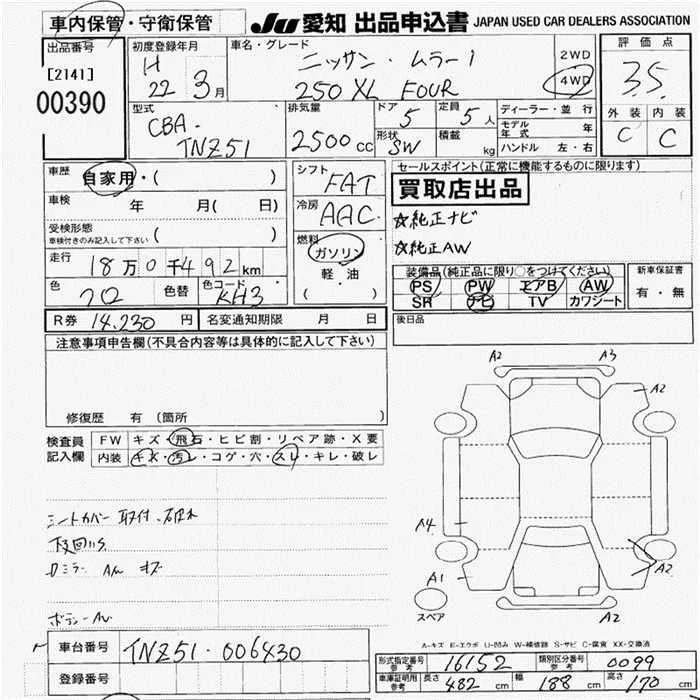 車内保管・守衛保管
JU 愛知 出品申込書 JAPAN USED CAR DEALERS ASSOCIATION
出品番号
[2141]
00390
初度登録年月
H
22 3月
車名・グレード
ニッサン・ムラーノ
250 XL FOUR
2WD
4WD
評価点
3.5
外装 内装
C C
型式
CBA-
TNZ51
排気量
2500cc
ドア 5
形状 SW
定員 5人
積載 kg
ディーラー・並行
モデル年式 年
ハンドル 左・右
車歴
自家用・( )
車検 年 月( 日)
受検形態
車検付きのみ記入して下さい ( )
走行
18万0千492km
色 色替 色コード
クロ KH3
シフト
FAT
冷房
AAC
燃料
ガソリン
軽・油
( ・ )
セールスポイント(正常に機能するものに限ります)
買取店出品
☆純正ナビ
☆純正AW
装備品(純正品に限り○をつけてください)
PS PW エアB AW
SR ナビ TV カワシート
新車保証書
有・無
R券 14,230円 名変通知期限 月 日
後日品
注意事項申告欄(不具合内容等は具体的に記入して下さい)
修復歴 有 (箇所 )
検査員
記入欄
FW キズ・飛石・ヒビ割・リペア跡・X要
内装 キズ・汚レ・コゲ・穴・スレ・キレ・破レ
シートカバー取付
下回りS
Dミラー AW キズ
A2 A3
A2
A4
A1 A2
A2
スペア
A-キズ E-エクボ U-凹み W-補修跡 S-サビ C-腐食 XX-交換済
車台番号 TNZ51-006430
登録番号
形式指定番号参考 16152 類別区分番号参考 0099
車庫証明用参考 長さ 482cm 幅 188cm 高さ 170cm